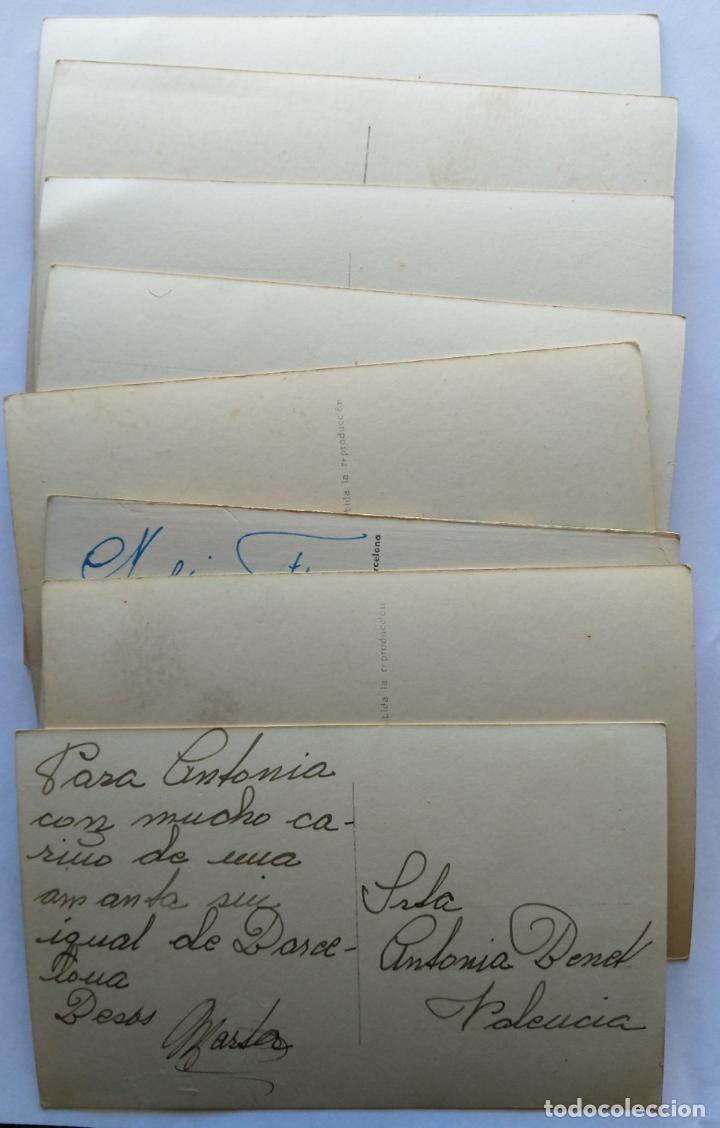 tida la reproducción
rcelona
tida la reproducción
Para Antonia
con mucho ca-
riño de una
amanta sin
igual de Barce-
lona
Besos
Marta
Srta
Antonia Benet
Valencia
todocoleccion
todocoleccion.net